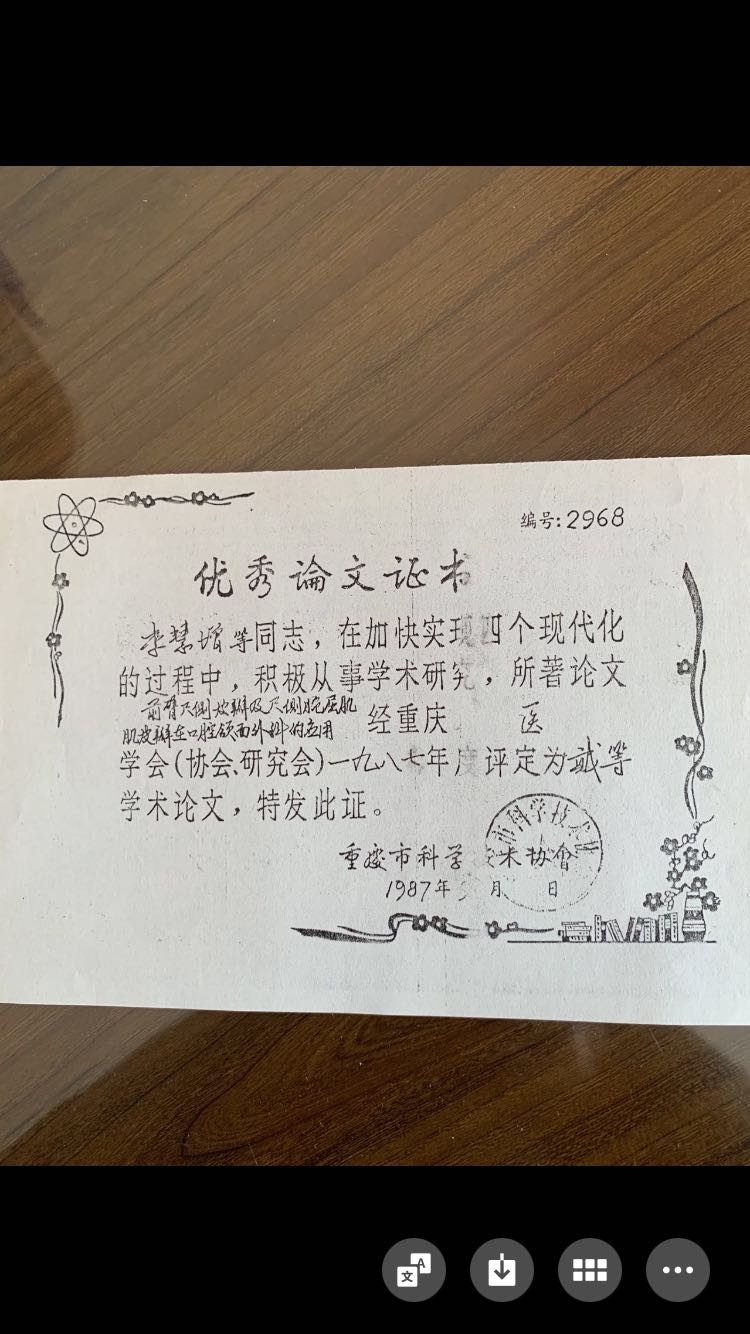 编号:2968
优秀论文证书
李慧增等同志，在加快实现四个现代化
的过程中，积极从事学术研究，所著论文
前臂尺侧皮瓣及尺侧腕屈肌
肌皮瓣在口腔颌面外科的应用 经重庆 医
学会(协会、研究会)一九八七年度评定为贰等
学术论文，特发此证。
重庆市科学技术协会
1987年 月 日
市科学技术